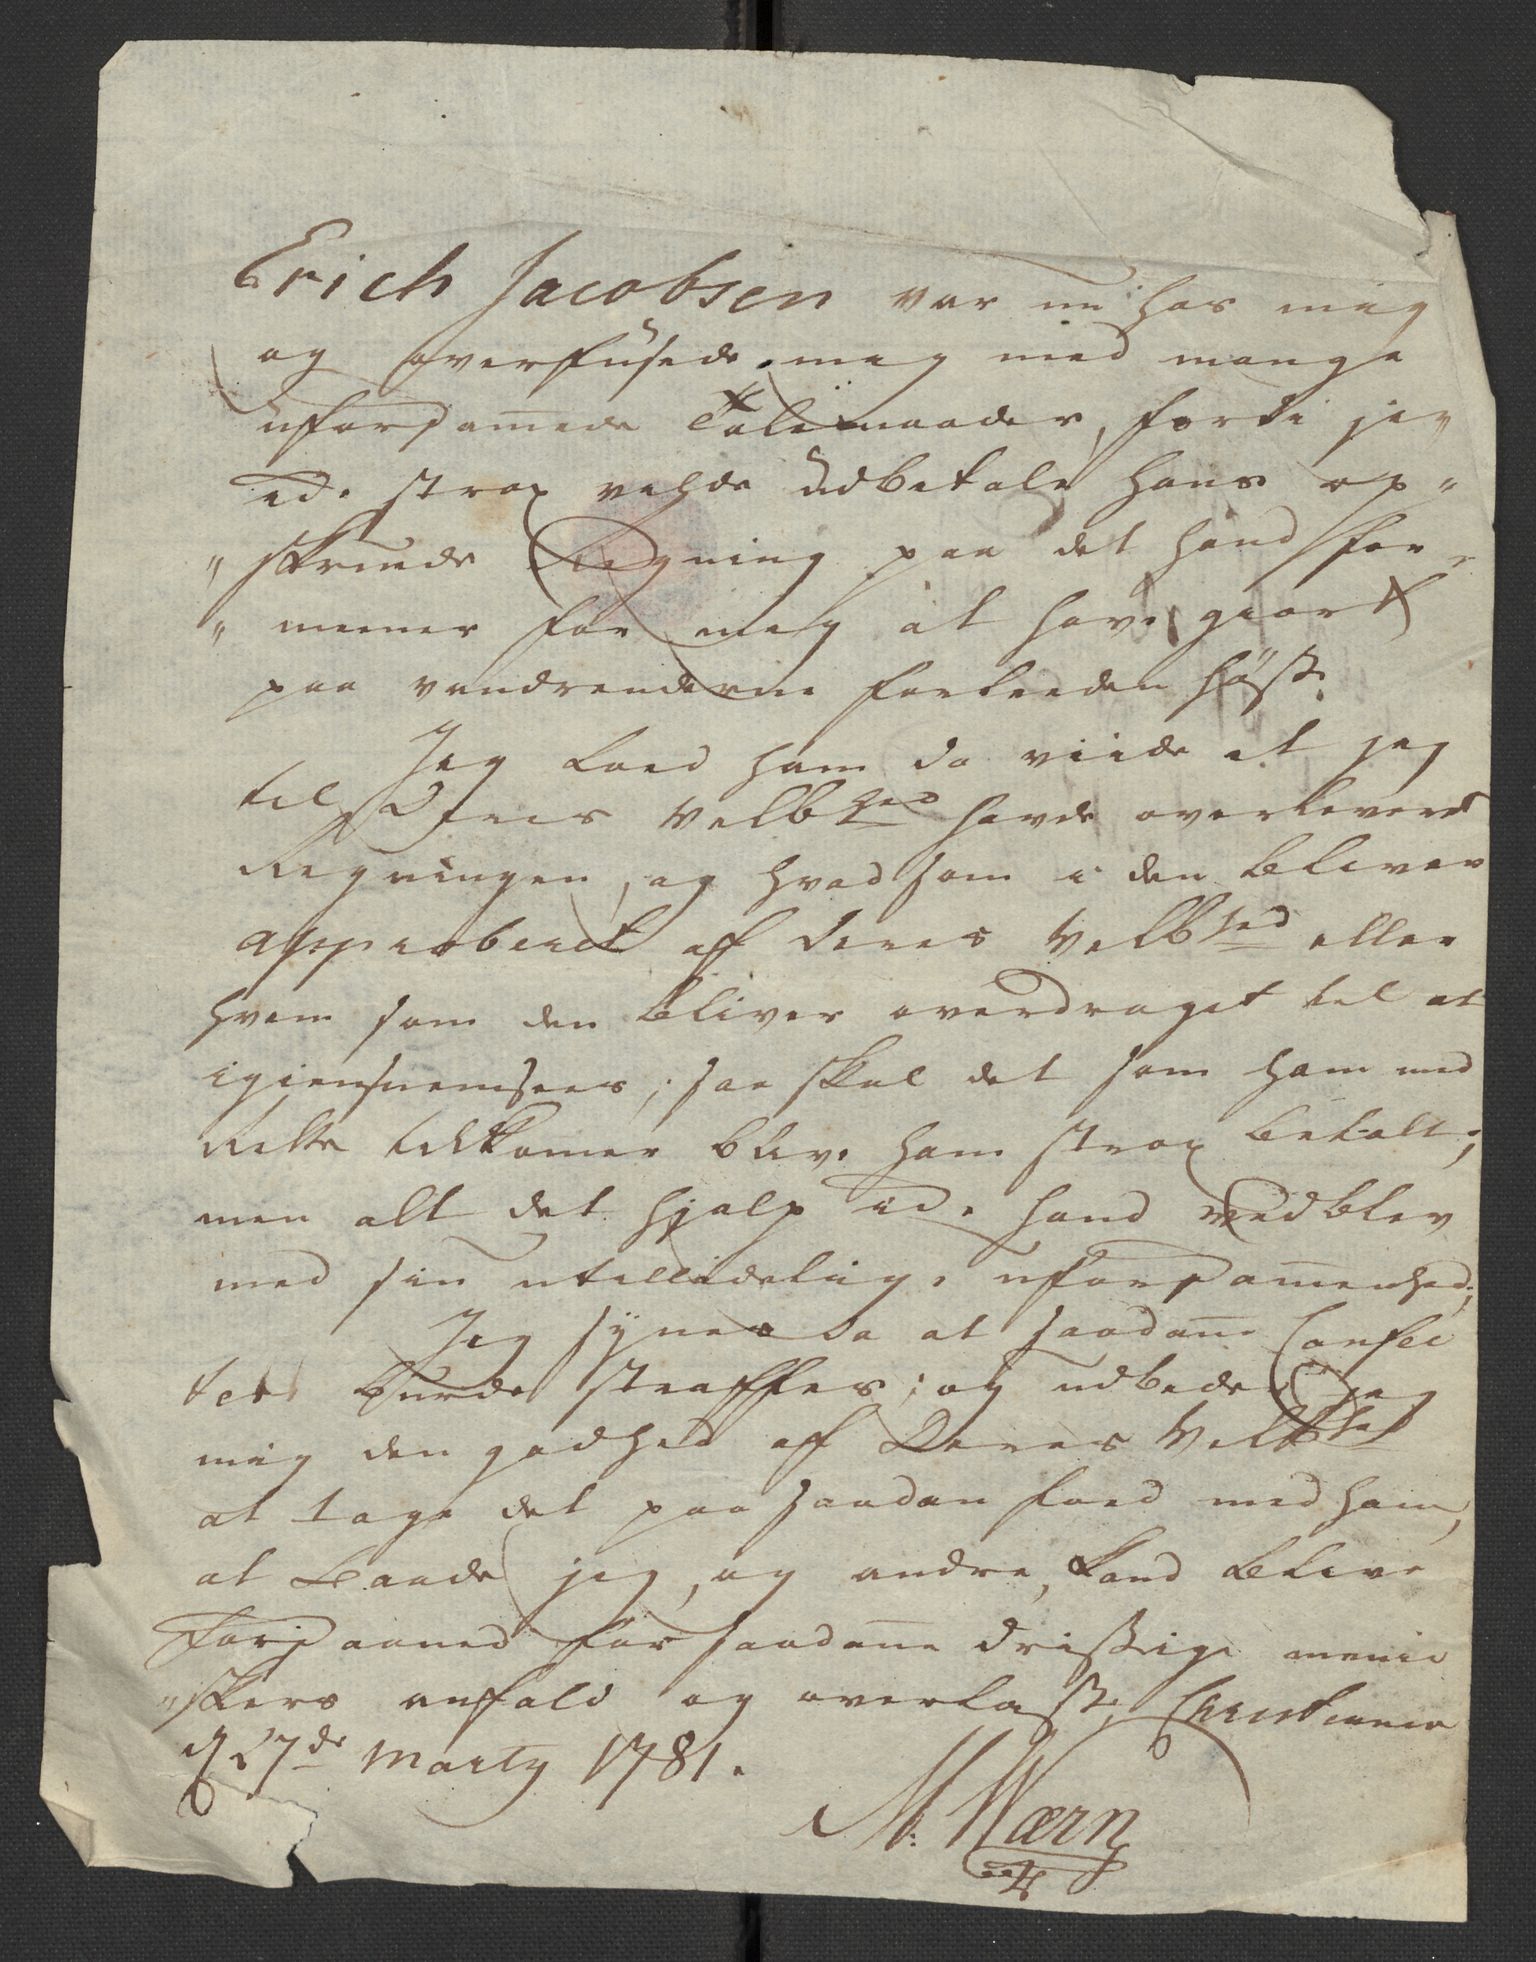 Erich Jacobsen var nu hos mig
og overfusede mig med mange
uforskamede Talemaader, fordi jeg
icke strax vilde udbetale hans op-
"skrevde Regning paa det hand for-
"meener for mig at have giort
paa vandrenderne forleeden høst.
Jeg loed ham da viide at jeg
til Deres Velbhed havde overleveret
Regningen, og hvad som i den bliver
approberet af Deres Velbhed eller
hvem som den bliver overdraget til at
igiennemsees, saa skal det som ham med
Rette tilkomer blive ham strax betalt;
men alt det hjalp icke hand vedblev
med sin utilladelige uforskamenhed;
Jeg synes da at saadane Confec
ter burde straffes; og udbeder jeg
mig den godhed af Deres Velbhed
at tage det paa saadan foed med ham,
at baade jeg, og andre, kand blive
forskaaned for saadane dristige menne
"skers anfald og overlast, Christiania
d 27de Marty 1781.
M: Wærn